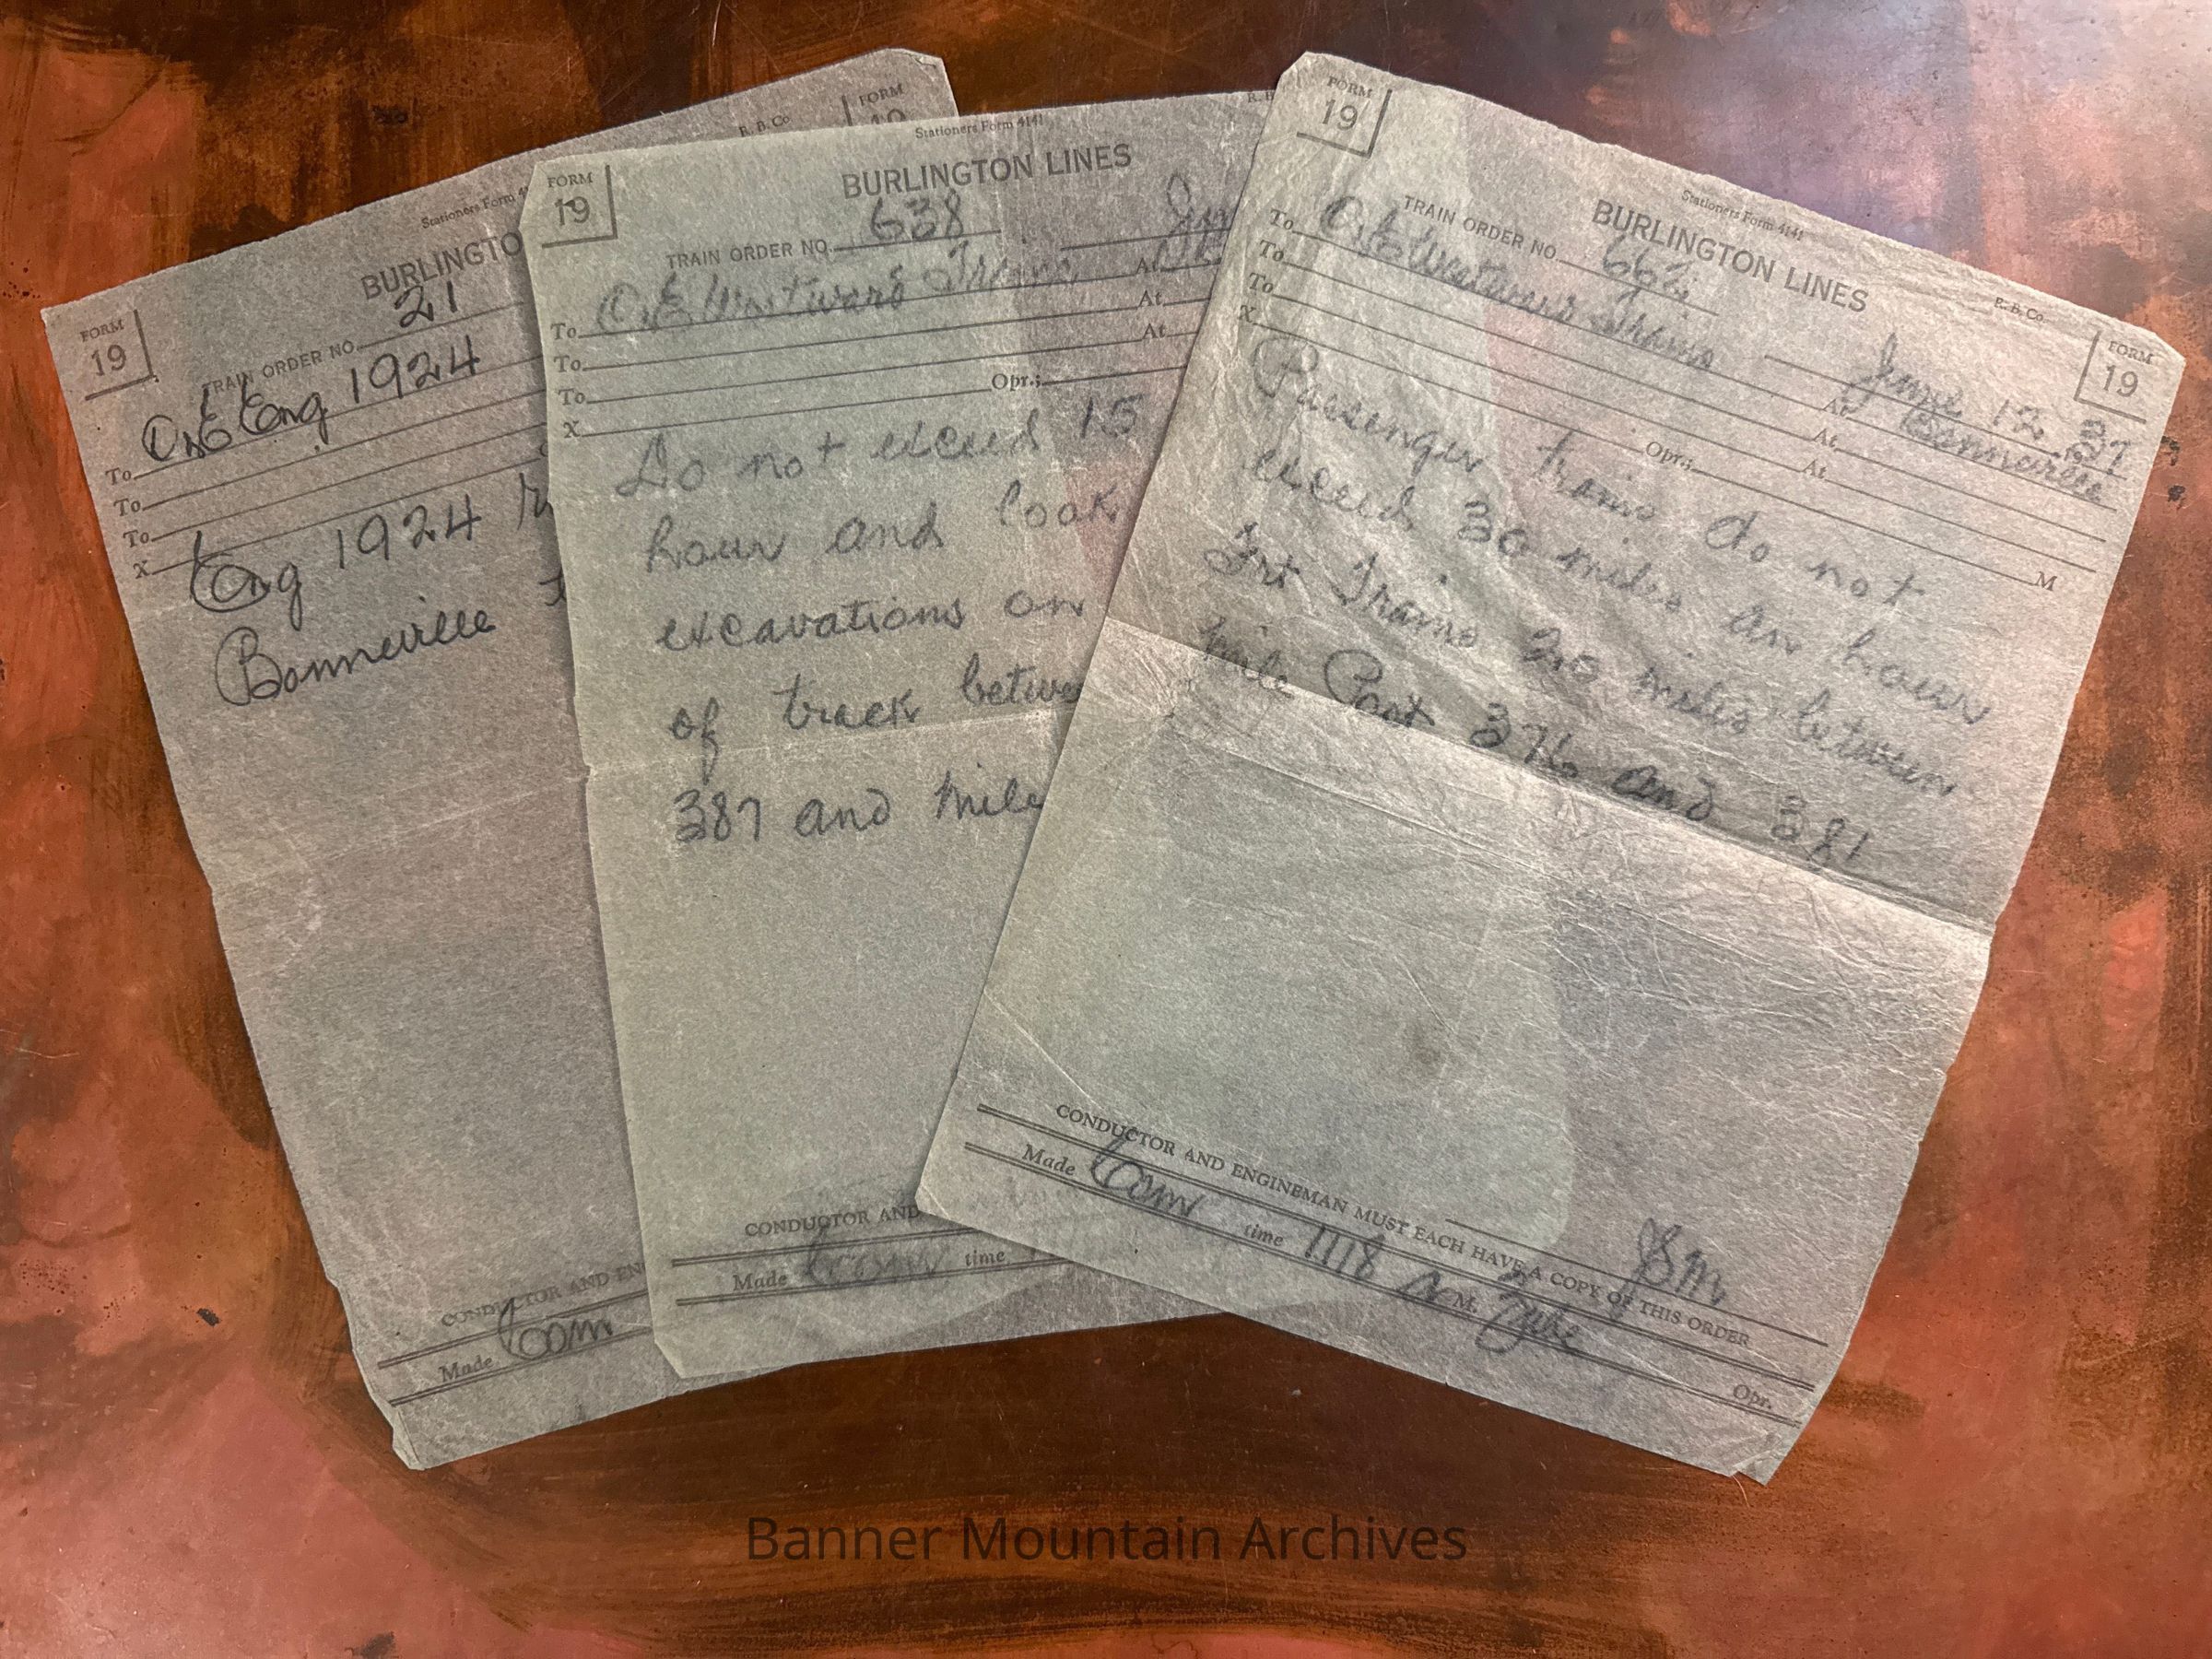 FORM
19
R. B. Co.
Stationers Form
BURLINGTO
TRAIN ORDER NO. 21
To C&E Eng 1924
To
To
X
Eng 1924
Bonneville
CONDUCTOR AND EN
Made com
FORM
19
Stationers Form 4141
R. B
BURLINGTON LINES
TRAIN ORDER NO. 638
To C&E Westward Trains At
To At
To At
X Opr.;
Do not exceed 15
hour and look
excavations on
of track betwe
387 and mile
CONDUCTOR AND
Made com time
FORM
19
Stationers Form 4141
R. B. Co.
FORM
19
BURLINGTON LINES
TRAIN ORDER NO. June 12 37
To C&E Westward Trains At Bonneville
To At
To At
X Opr.; M
Passenger trains do not
exceed 30 miles an hour
Frt Trains 20 miles between
mile Post 376 and 381
CONDUCTOR AND ENGINEMAN MUST EACH HAVE A COPY OF THIS ORDER
Made com time 1118 A M. Opr.
Banner Mountain Archives